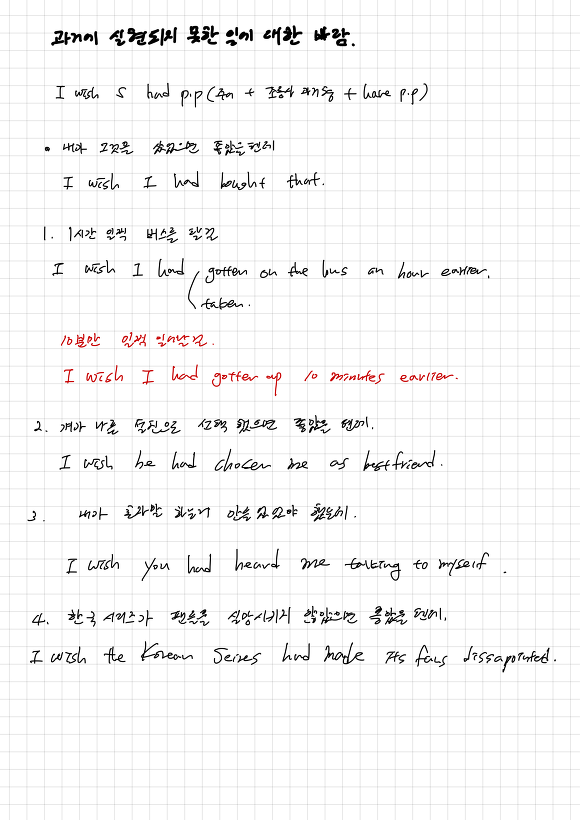 과거에 실현되지 못한 일에 대한 바람.
I wish S had p.p (주어 + 조동사 과거형 + have p.p)
• 내가 그것을 샀었으면 좋았을텐데
I wish I had bought that.
1. 1시간 일찍 버스를 탈걸
I wish I had gotten on the bus an hour earlier.
taken.
10분만 일찍 일어날걸.
I wish I had gotten up 10 minutes earlier.
2. 걔가 나를 절친으로 선택 했으면 좋았을 텐데.
I wish he had chosen me as bestfriend.
3. 내가 혼잣말 하는거 들었어야 했는데.
I wish you had heard me talking to myself.
4. 한국 시리즈가 팬들을 실망시키지 않았으면 좋았을 텐데.
I wish the Korean Seires had made its fans dissapointed.